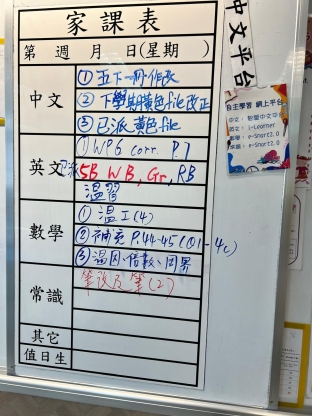 家課表
第 週 月 日(星期 )
中文
① 五下一冊作文
② 下學期黃色file改正
③ 已派黃色file
英文
① WPG corr. P.7
已派 5B WB, Gr, RB
溫習
數學
① 溫工(4)
② 補充 P.44-45 (Q1-4c)
③ 溫因、倍數、周界
常識
(2)
其它
值日生
中文平台
自主學習 網上平台
中文:
英文: i-Learner
數學: e-Smart2.0
常識: e-Smart2.0